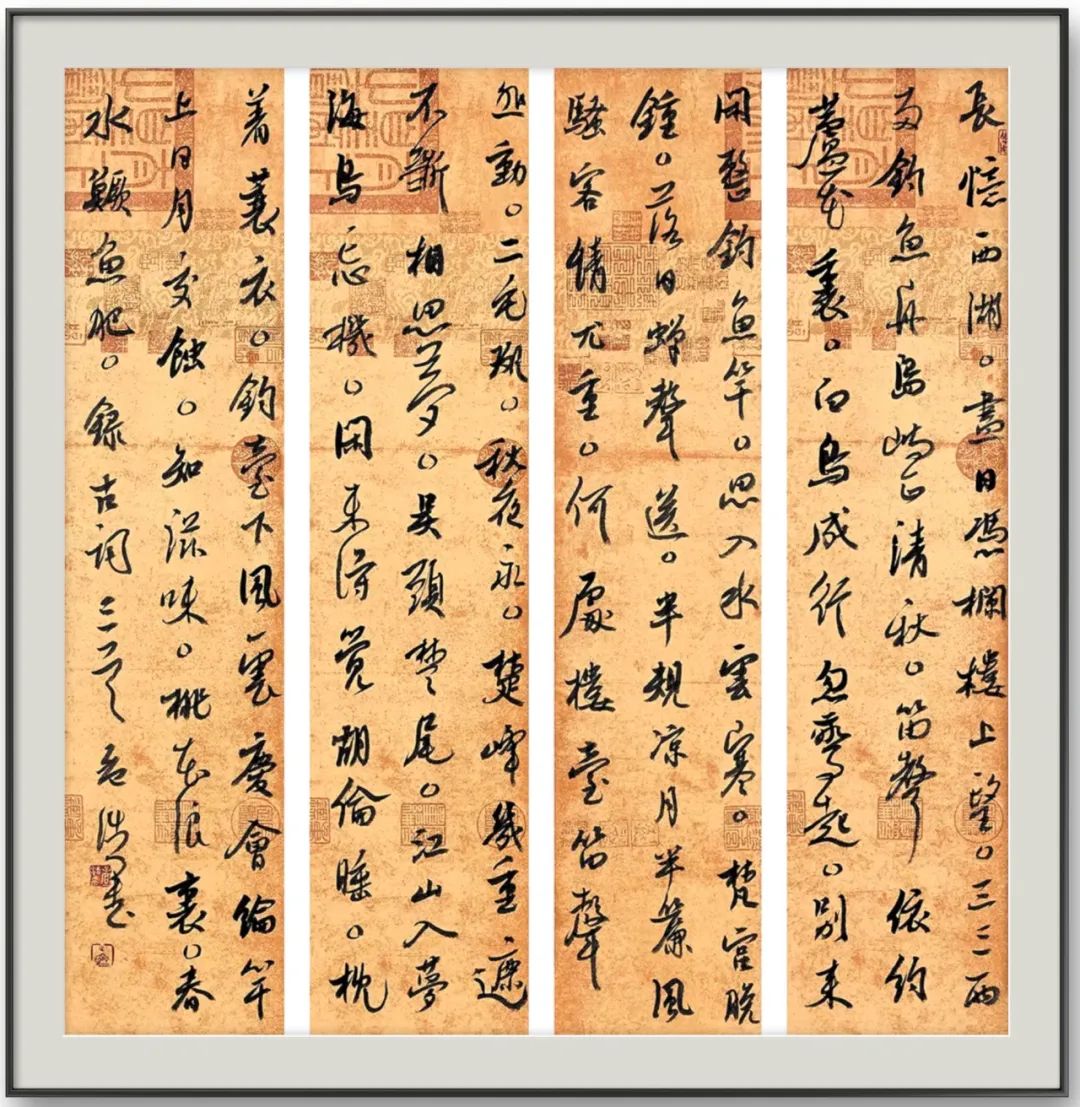 長憶西湖。盡日憑欄樓上望。三三兩
兩釣魚舟島嶼正清秋。笛聲依約
蘆花裏。白鳥成行忽驚起。別來
閒整釣魚竿。思入水雲寒。梵宮晚
鐘。落日蟬聲送。半規涼月半簾風
騷客情尤重。何處樓臺笛聲
悲動。二毛斑。秋夜永。楚峰幾重遮
不斷相思夢。吳頭楚尾。江山入夢
海鳥忘機。閒來得覺胡倫睡。枕
着蓑衣。釣臺下風雲慶會綸竿
上日月交蝕。知滋味。桃花浪裏。春
水鱖魚肥。錄古詞 書